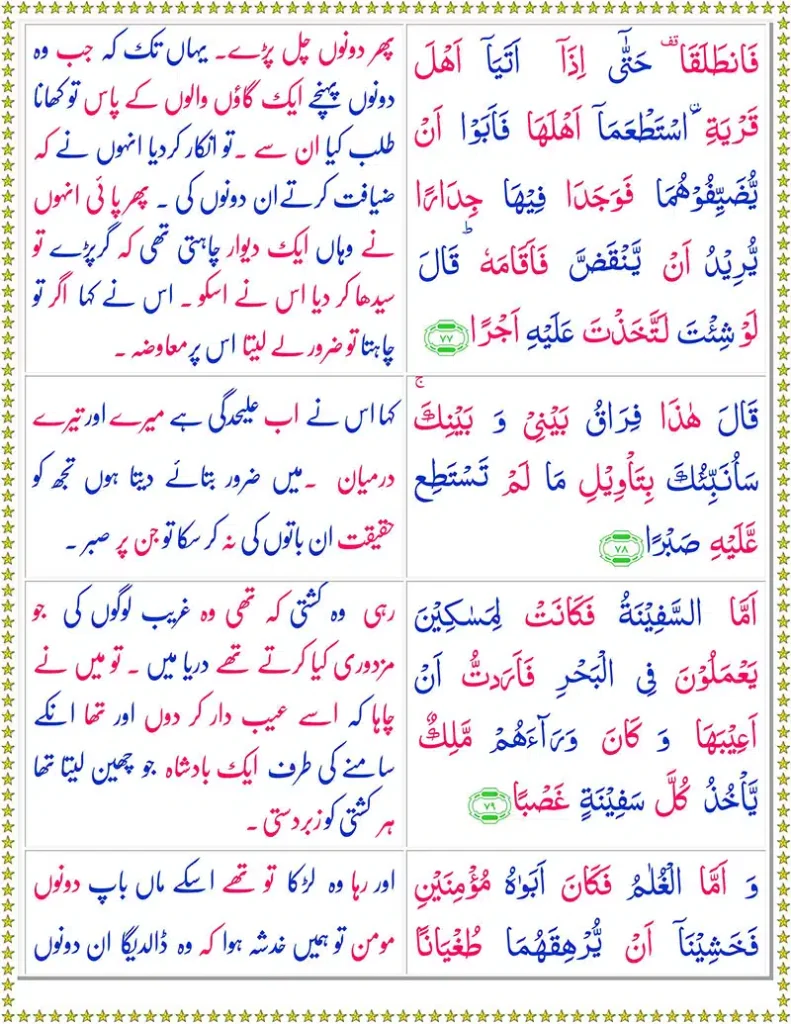 فَانطَلَقَا ۥقف حَتّٰۤى اِذَاۤ اَتَيَاۤ اَهْلَ
قَرْيَةِ ِۨاسْتَطْعَمَاۤ اَهْلَهَا فَاَبَوْا اَنْ
يُّضَيِّفُوْهُمَا فَوَجَدَا فِيْهَا جِدَارًا
يُّرِيْدُ اَنْ يَّنْقَضَّ فَاَقَامَهٗ ؕ قَالَ
لَوْ شِئْتَ لَتَّخَذْتَ عَلَيْهِ اَجْرًا ﴿۷۷﴾
پھر دونوں چل پڑے۔ یہاں تک کہ جب وہ
دونوں پہنچے ایک گاؤں والوں کے پاس تو کھانا
طلب کیا ان سے ۔ تو انکار کردیا انہوں نے کہ
ضیافت کرتے ان دونوں کی ۔ پھر پائی انہوں
نے وہاں ایک دیوار چاہتی تھی کہ گر پڑے تو
سیدھا کر دیا اس نے اسکو ۔ اس نے کہا اگر تو
چاہتا تو ضرور لے لیتا اس پر معاوضہ ۔
قَالَ هٰذَا فِرَاقُ بَيْنِىْ وَ بَيْنِكَ ۚ
سَاُنَبِّئُكَ بِتَاْوِيْلِ مَا لَمْ تَسْتَطِعْ
عَّلَيْهِ صَبْرًا ﴿۷۸﴾
کہا اس نے اب علیحدگی ہے میرے اور تیرے
درمیان ۔ میں ضرور بتائے دیتا ہوں تجھ کو
حقیقت ان باتوں کی نہ کر سکا تو جن پر صبر ۔
اَمَّا السَّفِيْنَةُ فَكَانَتْ لِمَسٰكِيْنَ
يَعْمَلُوْنَ فِى الْبَحْرِ فَاَرَدْتُّ اَنْ
اَعِيْبَهَا وَ كَانَ وَرَآءَهُمْ مَّلِكٌ
يَّاْخُذُ كُلَّ سَفِيْنَةٍ غَصْبًا ﴿۷۹﴾
رہی وہ کشتی کہ تھی وہ غریب لوگوں کی جو
مزدوری کیا کرتے تھے دریا میں ۔ تو میں نے
چاہا کہ اسے عیب دار کر دوں اور تھا انکے
سامنے کی طرف ایک بادشاہ جو چھین لیتا تھا
ہر کشتی کو زبردستی ۔
وَ اَمَّا الْغُلٰمُ فَكَانَ اَبَوٰهُ مُؤْمِنَيْنِ
فَخَشِيْنَاۤ اَنْ يُّرْهِقَهُمَا طُغْيَانًا
اور رہا وہ لڑکا تو تھے اسکے ماں باپ دونوں
مومن تو ہمیں خدشہ ہوا کہ وہ ڈالدیگا ان دونوں